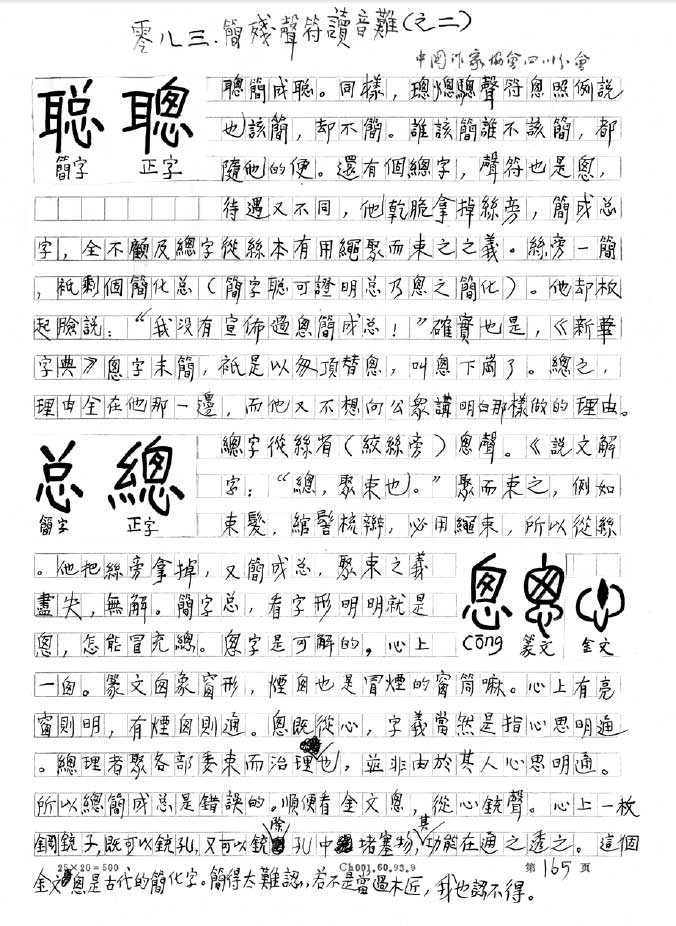 零八三.簡殘聲符讀音難(之二)
中国作家协会四川分會
聪 聰
簡字 正字
聰簡成聪。同樣，璁熜驄聲符悤照例説
也該簡，却不簡。誰該簡誰不該簡，都
隨他的便。還有個總字，聲符也是悤，
待遇又不同，他乾脆拿掉絲旁，簡成总
字，全不顧及總字從絲本有用繩聚而束之之義。絲旁一簡
，祇剩個簡化总（簡字聪可證明总乃悤之簡化）。他却板
起臉説：“我没有宣佈過悤簡成总！”確實也是，《新華
字典》悤字未簡，祇是以匆頂替悤，叫悤下崗了。總之，
理由全在他那一邊，而他又不想向公衆講明白那樣做的理由。
总 總
簡字 正字
總字從絲省（絞絲旁）悤聲。《説文解
字：“總，聚束也。”聚而束之，例如
束髮，綰髻梳辮，必用繩束，所以從絲
。他把絲旁拿掉，又簡成总，聚束之義
盡失，無解。簡字总，看字形明明就是
悤，怎能冒充總。悤字是可解的，心上
悤
cōng 篆文 金文
一囱。篆文囱象窗形，煙囱也是冒煙的窗筒嘛。心上有亮
窗則明，有煙囱則通。悤既從心，字義當然是指心思明通
。總理者聚各部委束而治理也，並非由於其人心思明通。
所以總簡成总是錯誤的。順便看金文悤，從心銃聲。心上一枚
鋼銃子，既可以銃孔，又可以銃除孔中堵塞物，其功能在通之透之。這個
25×20=500 Ch001.60.93.9 第165頁
金文悤是古代的簡化字。簡得太難認，若不是當過木匠，我也認不得。